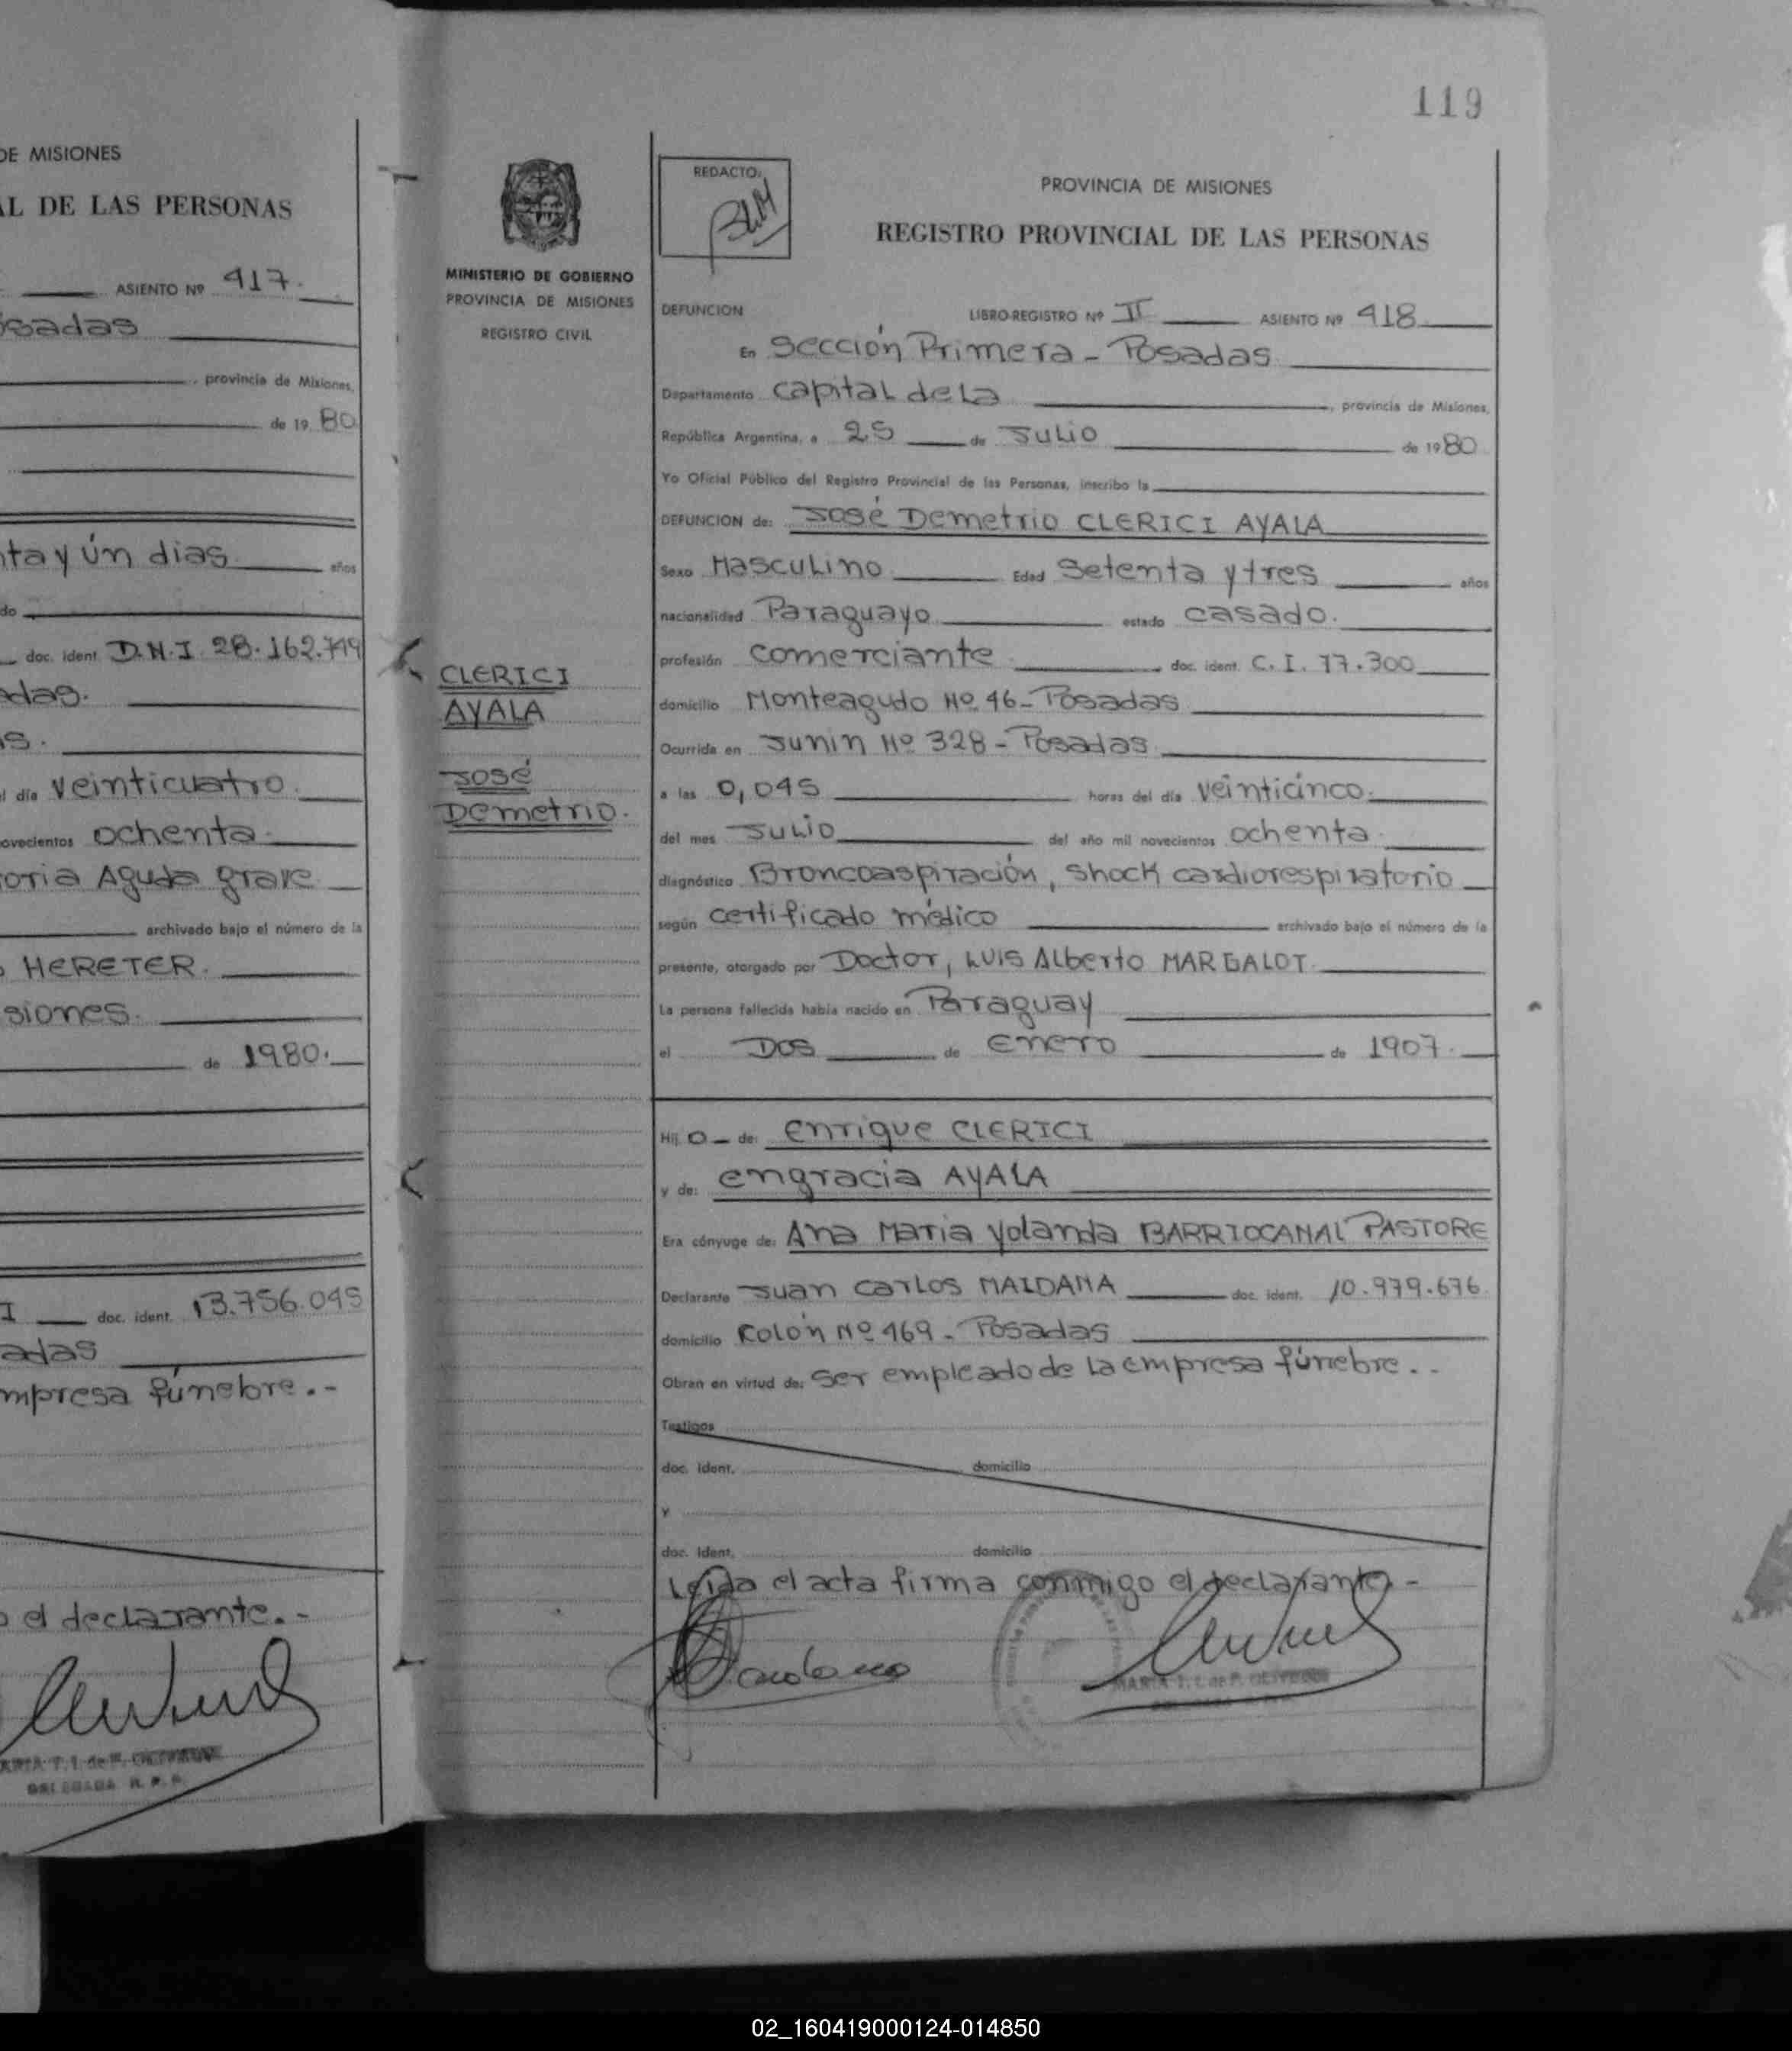 DE MISIONES
AL DE LAS PERSONAS
ASIENTO Nº 417.
osadas
, provincia de Misiones,
de 19 80
nta y ún dias años
do
doc. ident. D.N.I. 28.162.749
adas.
as.
el día veinticuatro.
novecientos ochenta.
oria Aguda grave
archivado bajo el número de la
o HERETER.
siones.
de 1980.
I doc. ident. 13.756.045
adas
mpresa fúnebre.-
o el declarante.-
MARIA T. I. de P. OLIVEIRA
DELEGADA R. P. P.
119
MINISTERIO DE GOBIERNO
PROVINCIA DE MISIONES
REGISTRO CIVIL
CLERICI
AYALA
José
Demetrio.
REDACTO:
PROVINCIA DE MISIONES
REGISTRO PROVINCIAL DE LAS PERSONAS
DEFUNCION LIBRO-REGISTRO Nº II ASIENTO Nº 418
En Sección Primera - Posadas
Departamento Capital de La , provincia de Misiones,
República Argentina, a 25 de Julio de 1980
Yo Oficial Público del Registro Provincial de las Personas, inscribo la
DEFUNCION de: José Demetrio CLERICI AYALA
Sexo Masculino Edad Setenta y tres años
nacionalidad Paraguayo estado casado.
profesión comerciante doc. ident. C. I. 77.300
domicilio Monteagudo Nº 46 - Posadas
Ocurrida en Junin Nº 328 - Posadas
a las 0,045 horas del día veinticinco.
del mes Julio del año mil novecientos ochenta.
diagnóstico Broncoaspiración, shock cardiorespiratorio
según certificado médico archivado bajo el número de la
presente, otorgado por Doctor, Luis Alberto MARGALOT.
La persona fallecida había nacido en Paraguay
el Dos de Enero de 1907.
Hij o de: Enrique CLERICI
y de: Engracia AYALA
Era cónyuge de: Ana Maria Yolanda BARRIOCANAL PASTORE
Declarante Juan Carlos MAIDANA doc. ident. 10.979.676
domicilio Kolón Nº 469 - Posadas
Obran en virtud de: Ser empleado de la empresa fúnebre.-
Testigos
doc. ident. domicilio
Y
doc. ident. domicilio
Leida el acta firma conmigo el declarante.-
MARIA T. I. de P. OLIVEIRA
02_160419000124-014850